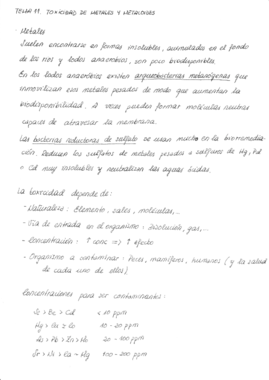 TEMA 11. TOXICIDAD DE METALES Y METALOIDES
· Metales
Suelen encontrarse en formas insolubles, acumulada en el fondo
de los ríos y lodos anaerobios, son poco biodisponibles.
En los lodos anaerobios existen arqueobacterias metanógenas que
inmovilizan con metales pesados de modo que aumentan la
biodisponibilidad. A veces pueden formar moléculas neutras
capaces de atravesar la membrana.
Las bacterias reductoras de sulfato se usan mucho en la biorremedia-
ción. Reducen los sulfatos de metales pesados a sulfuros de Hg, Pd
o Cd muy insolubles y neutralizan las aguas ácidas.
La toxicidad depende de:
- Naturaleza: Elemento, sales, moléculas,...
- Vía de entrada en el organismo: Disolución, gas,...
- Concentración: ↑ conc => ↑ efecto
- Organismo a contaminar: Peces, mamíferos, humanos (y la salud
de cada uno de ellos).
Concentraciones para ser contaminantes:
< 10 ppm
10 - 20 ppm
20 - 100 ppm
100 - 200 ppm